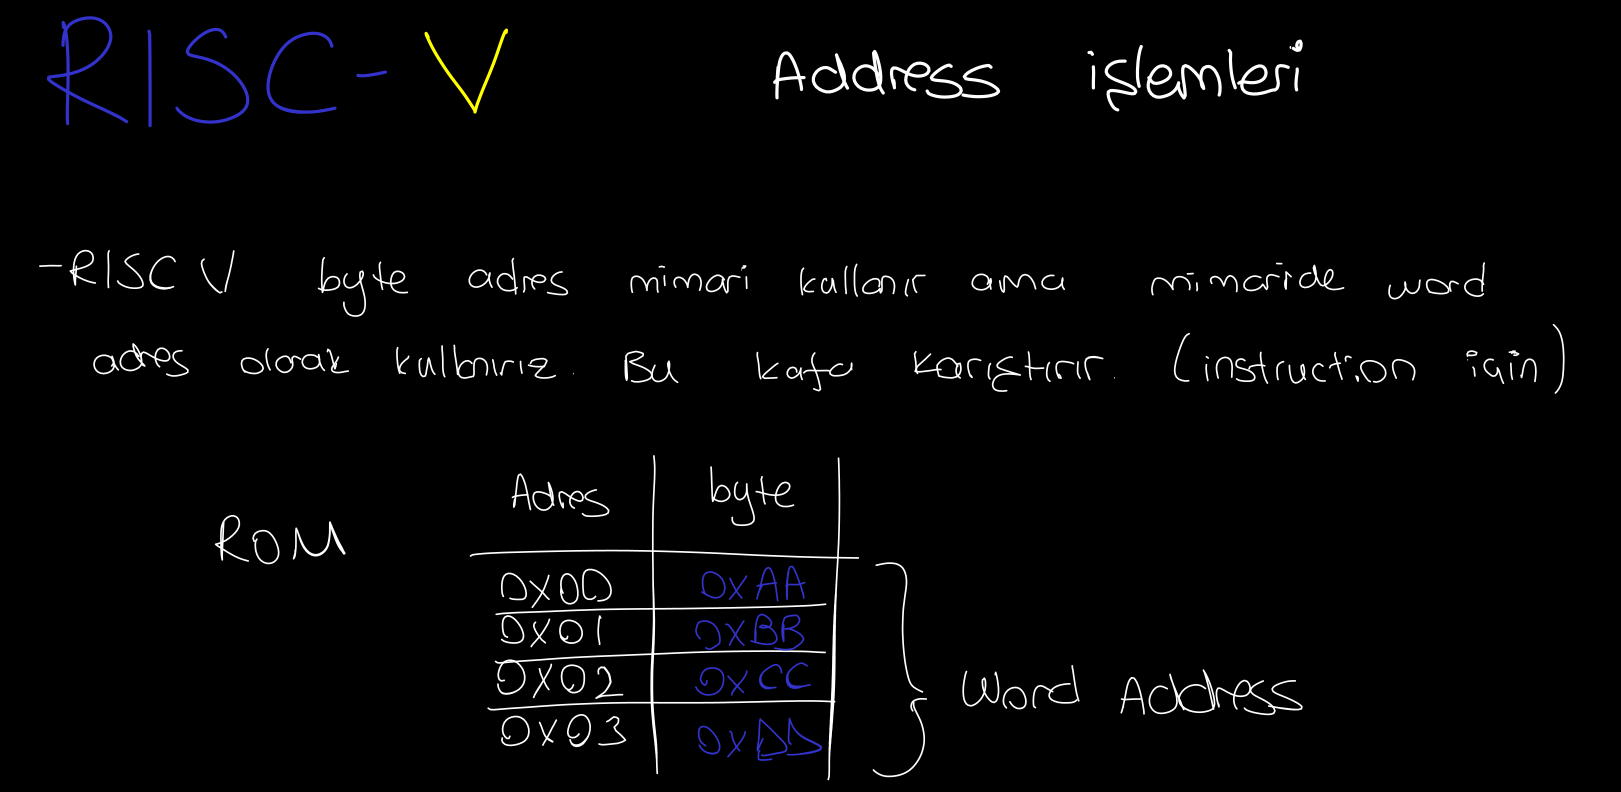 RISC-V Address işlemleri
-RISC V byte adres mimari kullanır ama mimaride word
adres olarak kullanırız. Bu kafa karıştırır. (instruction için)
Adres byte
ROM
0x00 0xAA
0x01 0xBB
0x02 0xCC
Word Address
0x03 0xDD